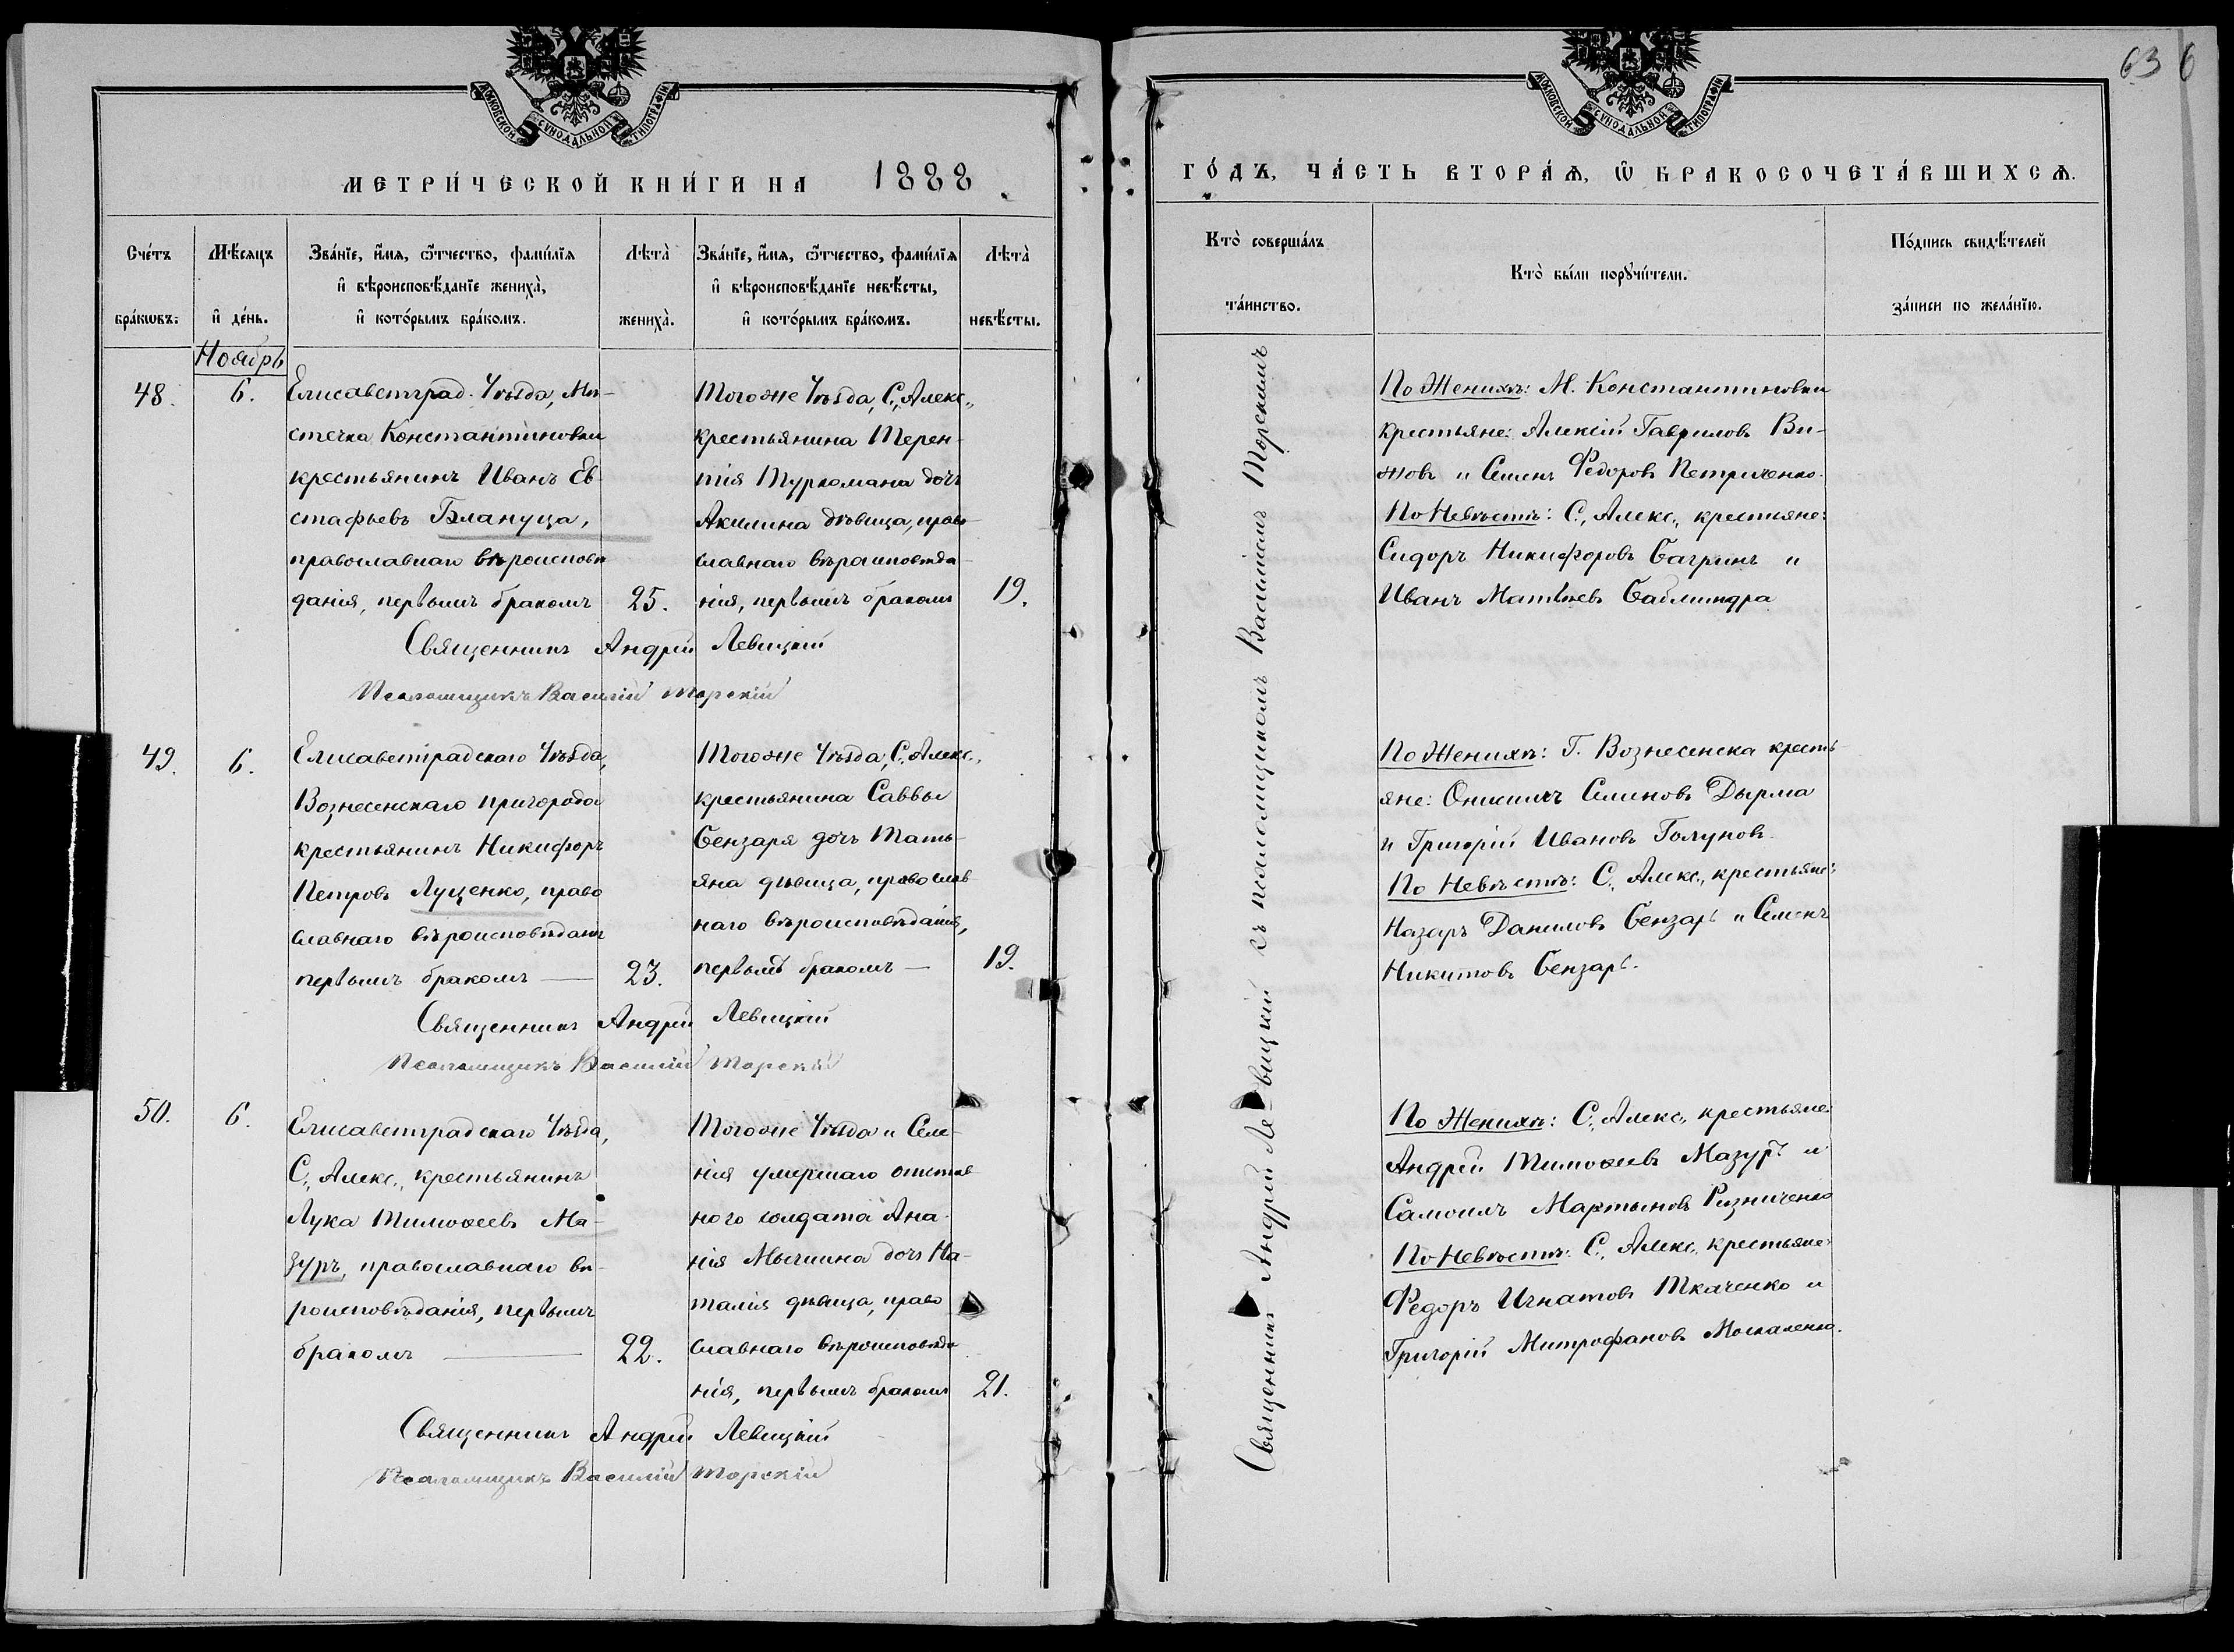 МОСКОВСКОЙ СѴНОДАЛЬНОЙ ТИПОГРАФІИ
МЕТРИ́ЧЕСКОЙ КНИ́ГИ НА 1888
Сче́тъ бра́кѡвъ.
Мѣ́сяцъ и҆ де́нь.
Зва́нїе, и҆́мя, ѻ҆́тчество, фами́лїя
и҆ вѣроисповѣ́данїе жениха̀,
и҆ кото́рымъ бра́комъ.
Лѣта̀ жениха̀.
Зва́нїе, и҆́мя, ѻ҆́тчество, фами́лїя
и҆ вѣроисповѣ́данїе невѣ́сты,
и҆ кото́рымъ бра́комъ.
Лѣта̀ невѣ́сты.
Ноябрь
48.
6.
Елисаветград. Уѣзда, Мѣ-
стечка Константиновки
крестьянинъ Иванъ Ев-
стафьевъ Блануца,
православнаго вѣроисповѣ
данія, первымъ бракомъ
25.
Тогоже Уѣзда, С. Алекс.,
крестьянина Терен-
тія Туркомана дочь
Акилина дѣвица, право-
славнаго вѣроисповѣда-
нія, первымъ бракомъ
19.
Священникъ Андрей Левицкій
Псаломщикъ Василій Торскій
49.
6.
Елисаветградскаго Уѣзда,
Вознесенскаго пригорода
крестьянинъ Никифоръ
Петровъ Луценко, право
славнаго вѣроисповѣданія
первымъ бракомъ —
23.
Тогоже Уѣзда, С. Алекс.,
крестьянина Саввы
Бензаря дочь Тать-
яна дѣвица, православ
наго вѣроисповѣданія,
первымъ бракомъ —
19.
Священникъ Андрей Левицкій
Псаломщикъ Василій Торскій
50.
6.
Елисаветградскаго Уѣзда,
С. Алекс., крестьянинъ
Лука Тимоѳеевъ Ма-
зуръ, православнаго вѣ-
роисповѣданія, первымъ
бракомъ —
22.
Тогоже Уѣзда и Селе-
нія умершаго отстав
ного солдата Ана-
нія дочь На-
талія дѣвица, право
славнаго вѣроисповѣда
нія, первымъ бракомъ
21.
Священникъ Андрей Левицкій
Псаломщикъ Василій Торскій
63 6
МОСКОВСКОЙ СѴНОДАЛЬНОЙ ТИПОГРАФІИ
ГО́ДЪ, ЧА́СТЬ ВТОРА́Ѧ, Ѡ҆ БРАКОСОЧЕТА́ВШИХСѦ.
Кто̀ соверша́лъ
та́инство.
Кто̀ бы́ли порꙋчи́тели.
По́дпись свидѣ́телей
за́писи по жела́нїю.
Священникъ Андрей Левицкій съ псаломщикомъ Василіемъ Торскимъ
По Женихѣ: М. Константиновки
крестьяне: Алексій Гаврилов Ви-
жов и Семенъ Федоровъ Петриченко.
По Невѣстѣ: С. Алекс., крестьяне:
Сидоръ Никифоровъ Багринъ и
Иванъ Матвѣевъ
По Женихѣ: Г. Вознесенска кресть-
яне: Онисимъ Семеновъ Дырма
и Григорій Ивановъ Голунов.
По Невѣстѣ: С. Алекс., крестьяне:
Назаръ Даниловъ Бензарь и Семенъ
Никитовъ Бензарь.
По Женихѣ: С. Алекс., крестьяне:
Андрей Тимоѳеевъ Мазуръ и
Самоилъ Мартыновъ Ризниченко
По Невѣстѣ: С. Алекс., крестьяне:
Федоръ Игнатовъ Ткаченко и
Григорій Митрофановъ Москаленко.